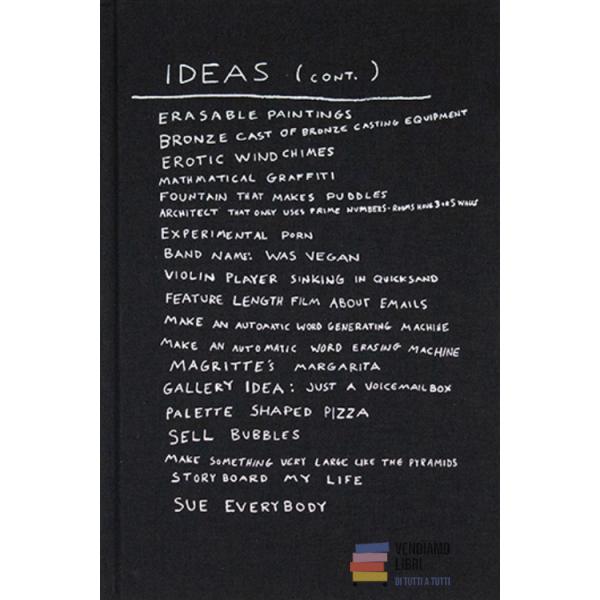 IDEAS (CONT.)
ERASABLE PAINTINGS
BRONZE CAST OF BRONZE CASTING EQUIPMENT
EROTIC WIND CHIMES
MATHMATICAL GRAFFITI
FOUNTAIN THAT MAKES PUDDLES
ARCHITECT THAT ONLY USES PRIME NUMBERS - ROOMS HAVE 3 OR 5 WALLS
EXPERIMENTAL PORN
BAND NAME: WAS VEGAN
VIOLIN PLAYER SINKING IN QUICKSAND
FEATURE LENGTH FILM ABOUT EMAILS
MAKE AN AUTOMATIC WORD GENERATING MACHINE
MAKE AN AUTOMATIC WORD ERASING MACHINE
MAGRITTE'S MARGARITA
GALLERY IDEA: JUST A VOICEMAIL BOX
PALETTE SHAPED PIZZA
SELL BUBBLES
MAKE SOMETHING VERY LARGE LIKE THE PYRAMIDS
STORYBOARD MY LIFE
SUE EVERYBODY
VENDIAMO
LIBRI
DI TUTTI A TUTTI